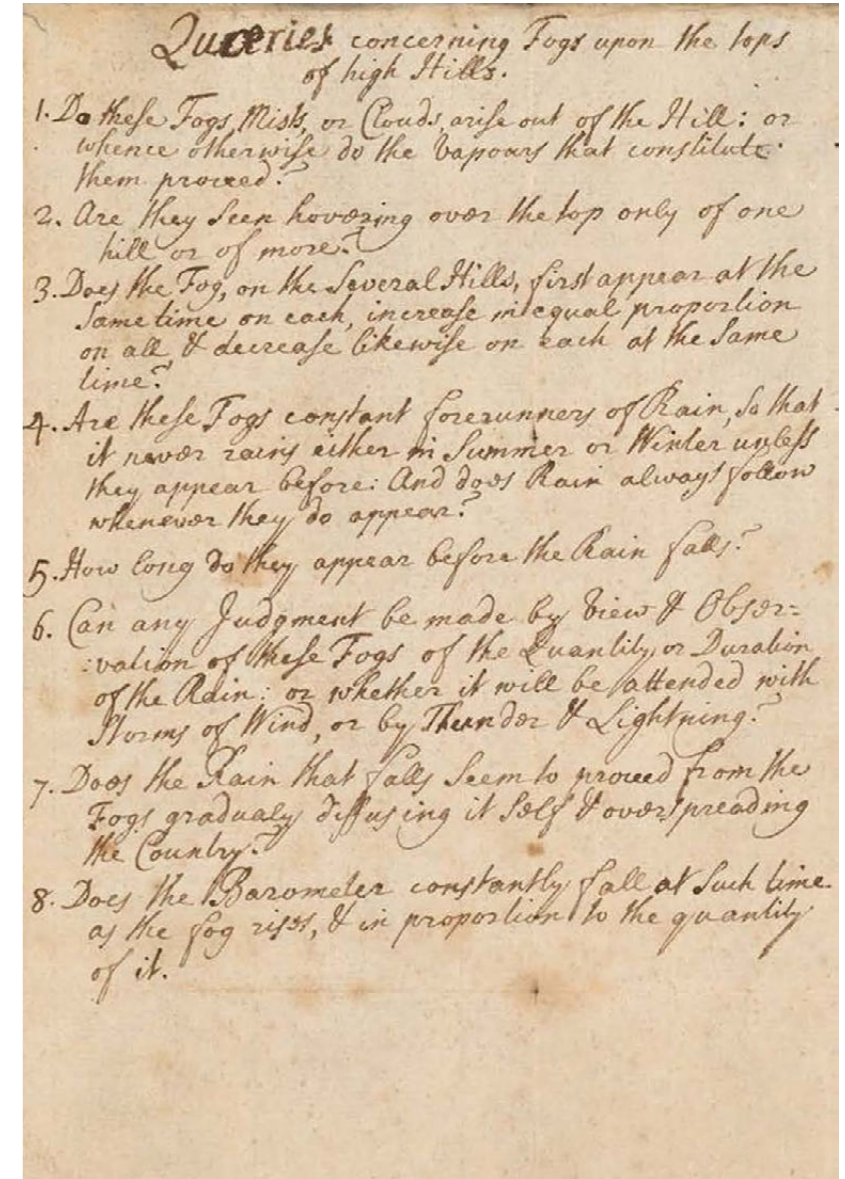 Quæries concerning Fogs upon the tops
of high Hills.
1. Do these Fogs, Mists, or Clouds, arise out of the Hill: or
whence otherwise do the Vapours that constitute
them proceed?
2. Are they Seen hovering over the top only of one
hill or of more?
3. Does the Fog, on the Several Hills, first appear at the
Same time on each, increase in equal proportion
on all & decrease likewise on each at the Same
time?
4. Are these Fogs constant forerunners of Rain, So that
it never rains either in Summer or Winter unless
they appear before: And does Rain always follow
whenever they do appear?
5. How long do they appear before the Rain falls?
6. Can any Judgment be made by View & Obser=
:vation of these Fogs of the Quantity or Duration
of the Rain: or whether it will be attended with
Storms of Wind, or by Thunder & Lightning?
7. Does the Rain that falls Seem to proceed from the
Fogs gradualy diffusing it Self & overspreading
the Country?
8. Does the Barometer constantly fall at Such time
as the fog rises, & in proportion to the quantity
of it.